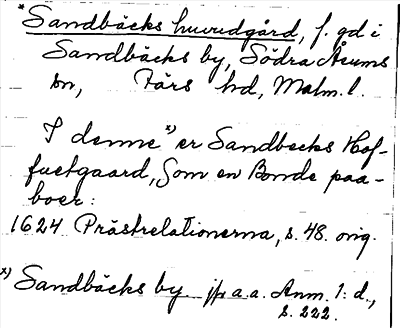 *Sandbäcks huvudgård, f. gd i
Sandbäcks by, Södra Åsums
sn, Färs hd, Malm. l.
I denne x) er Sandbecks Hof-
fuetgaard, Som en Bonde paa-
boer:
1624 Prästrelationerna, s. 48. orig.
x) Sandbäcks by jfr a.a. Anm. 1: d.,
s. 222.